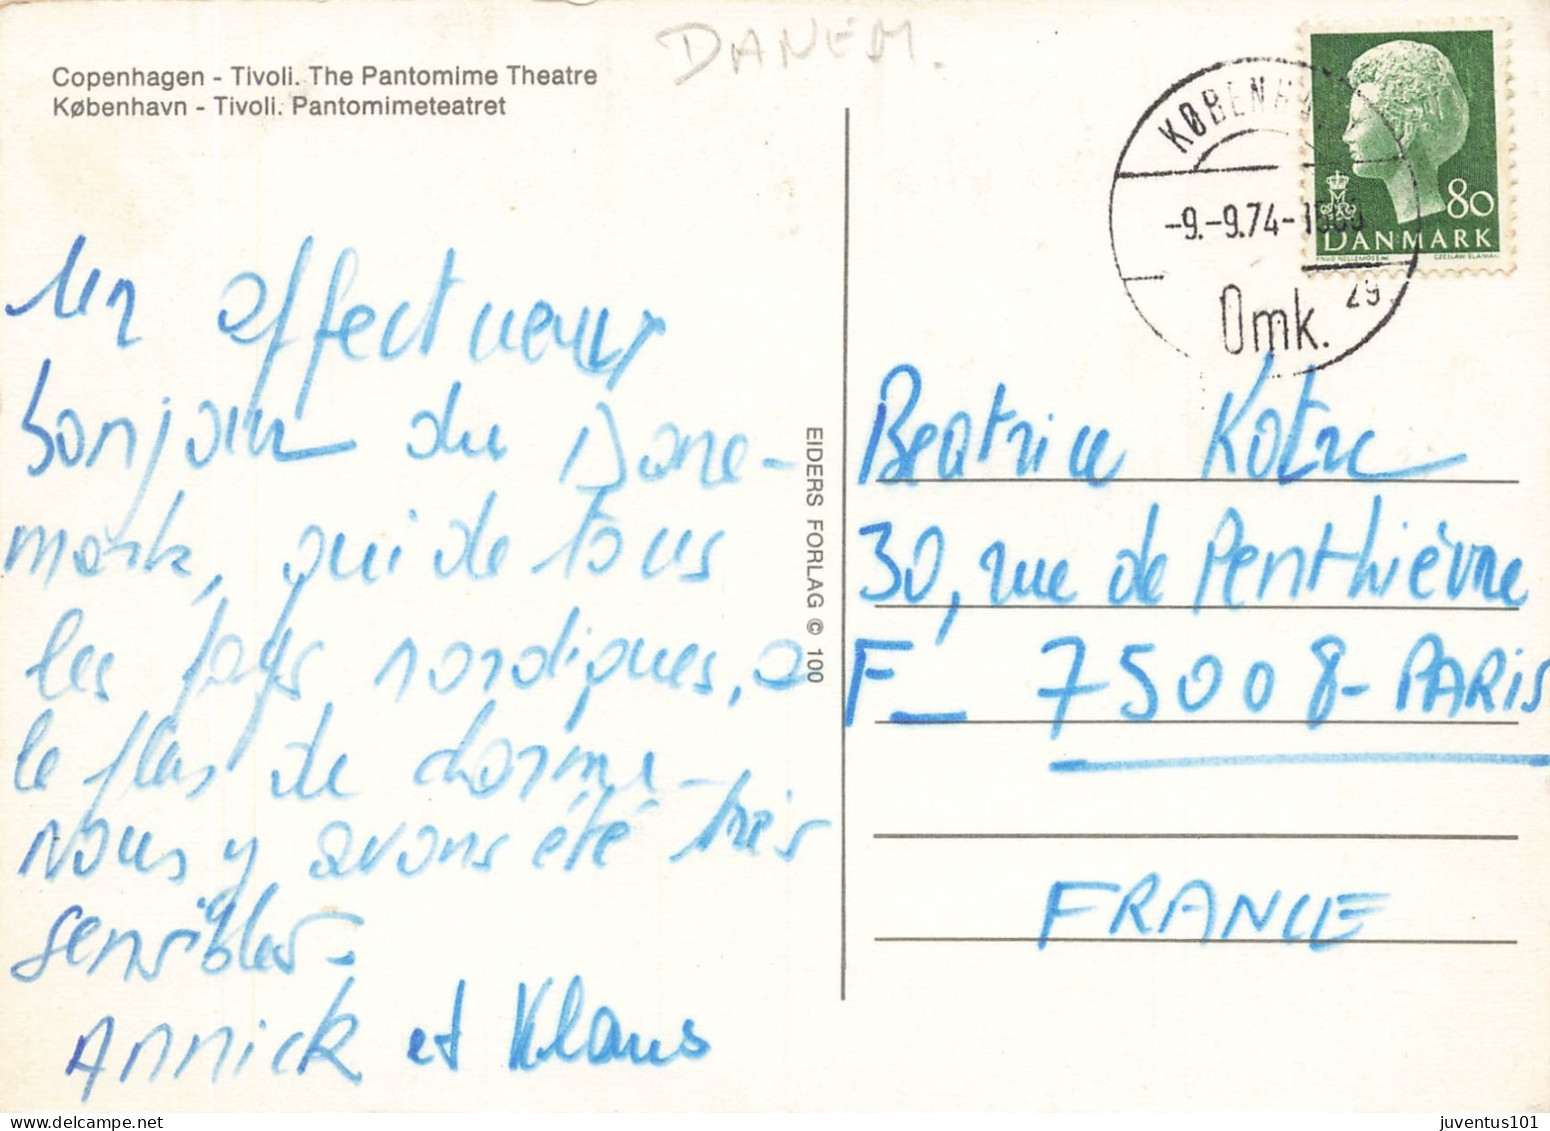 Copenhagen - Tivoli. The Pantomime Theatre
København - Tivoli. Pantomimeteatret
DANEM.
Un affectueux
bonjour du Dane-
mark, qui de tous
les pays nordiques, a
le plus de charme -
nous y avons été très
sensibles -
Annick et Klaus
EIDERS FORLAG © 100
KØBENH
-9.-9.74-
Omk. 29
80
DANMARK
Beatrice
30, rue de Penthièvre
F_ 75008-PARIS
FRANCE
juventus101